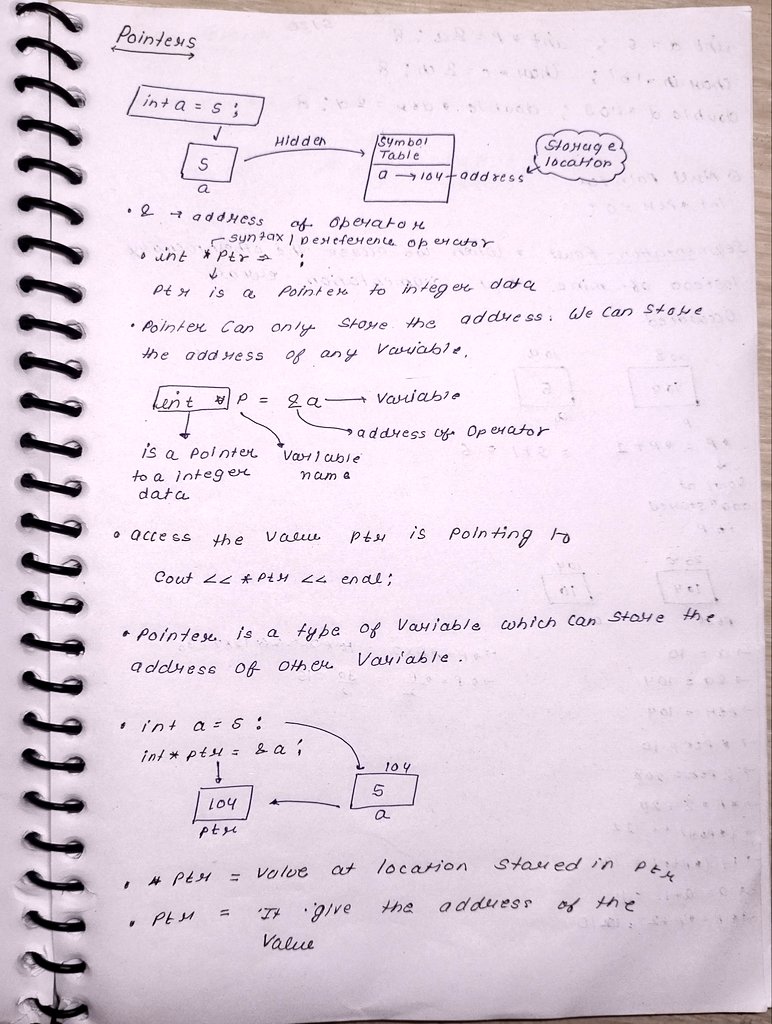 Pointers
int a = 5 ;
5
a
Hidden
Symbol
Table
a → 104 - address
Storage
location
• & → address of operator
syntax / pereference operator
• int *ptr = ;
ptr is a pointer to integer data
• Pointer can only store the address. We can store
the address of any variable.
int * p = &a → variable
address of operator
is a pointer
to a integer
data
variable
name
• access the value ptr is pointing to
cout << *ptr << endl;
• Pointer is a type of variable which can store the
address of other variable.
• int a = 5 ;
int* ptr = &a ;
104
ptr
104
5
a
• * ptr = value at location stored in ptr
• ptr = It give the address of the
value